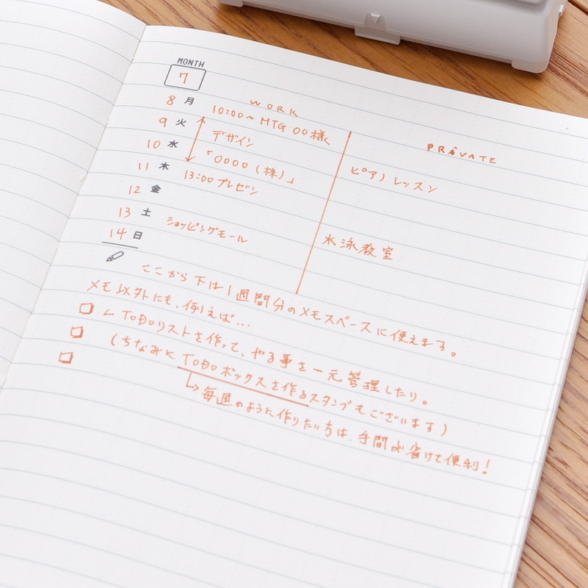 MONTH
7
WORK
PRIVATE
8 月 10:00~ MTG 〇〇様
9 火 デザイン
10 水 「〇〇〇〇(株)」 ピアノレッスン
11 木 13:00 プレゼン
12 金
13 土 ショッピングモール 水泳教室
14 日
ここから下は1週間分のメモスペースに使えます。
メモ以外にも、例えば…
← TODOリストを作って、やる事を一元管理したり。
(ちなみに TODOボックスを作るスタンプもございます)
↳毎週のように作りたい方は、手間が省けて便利!